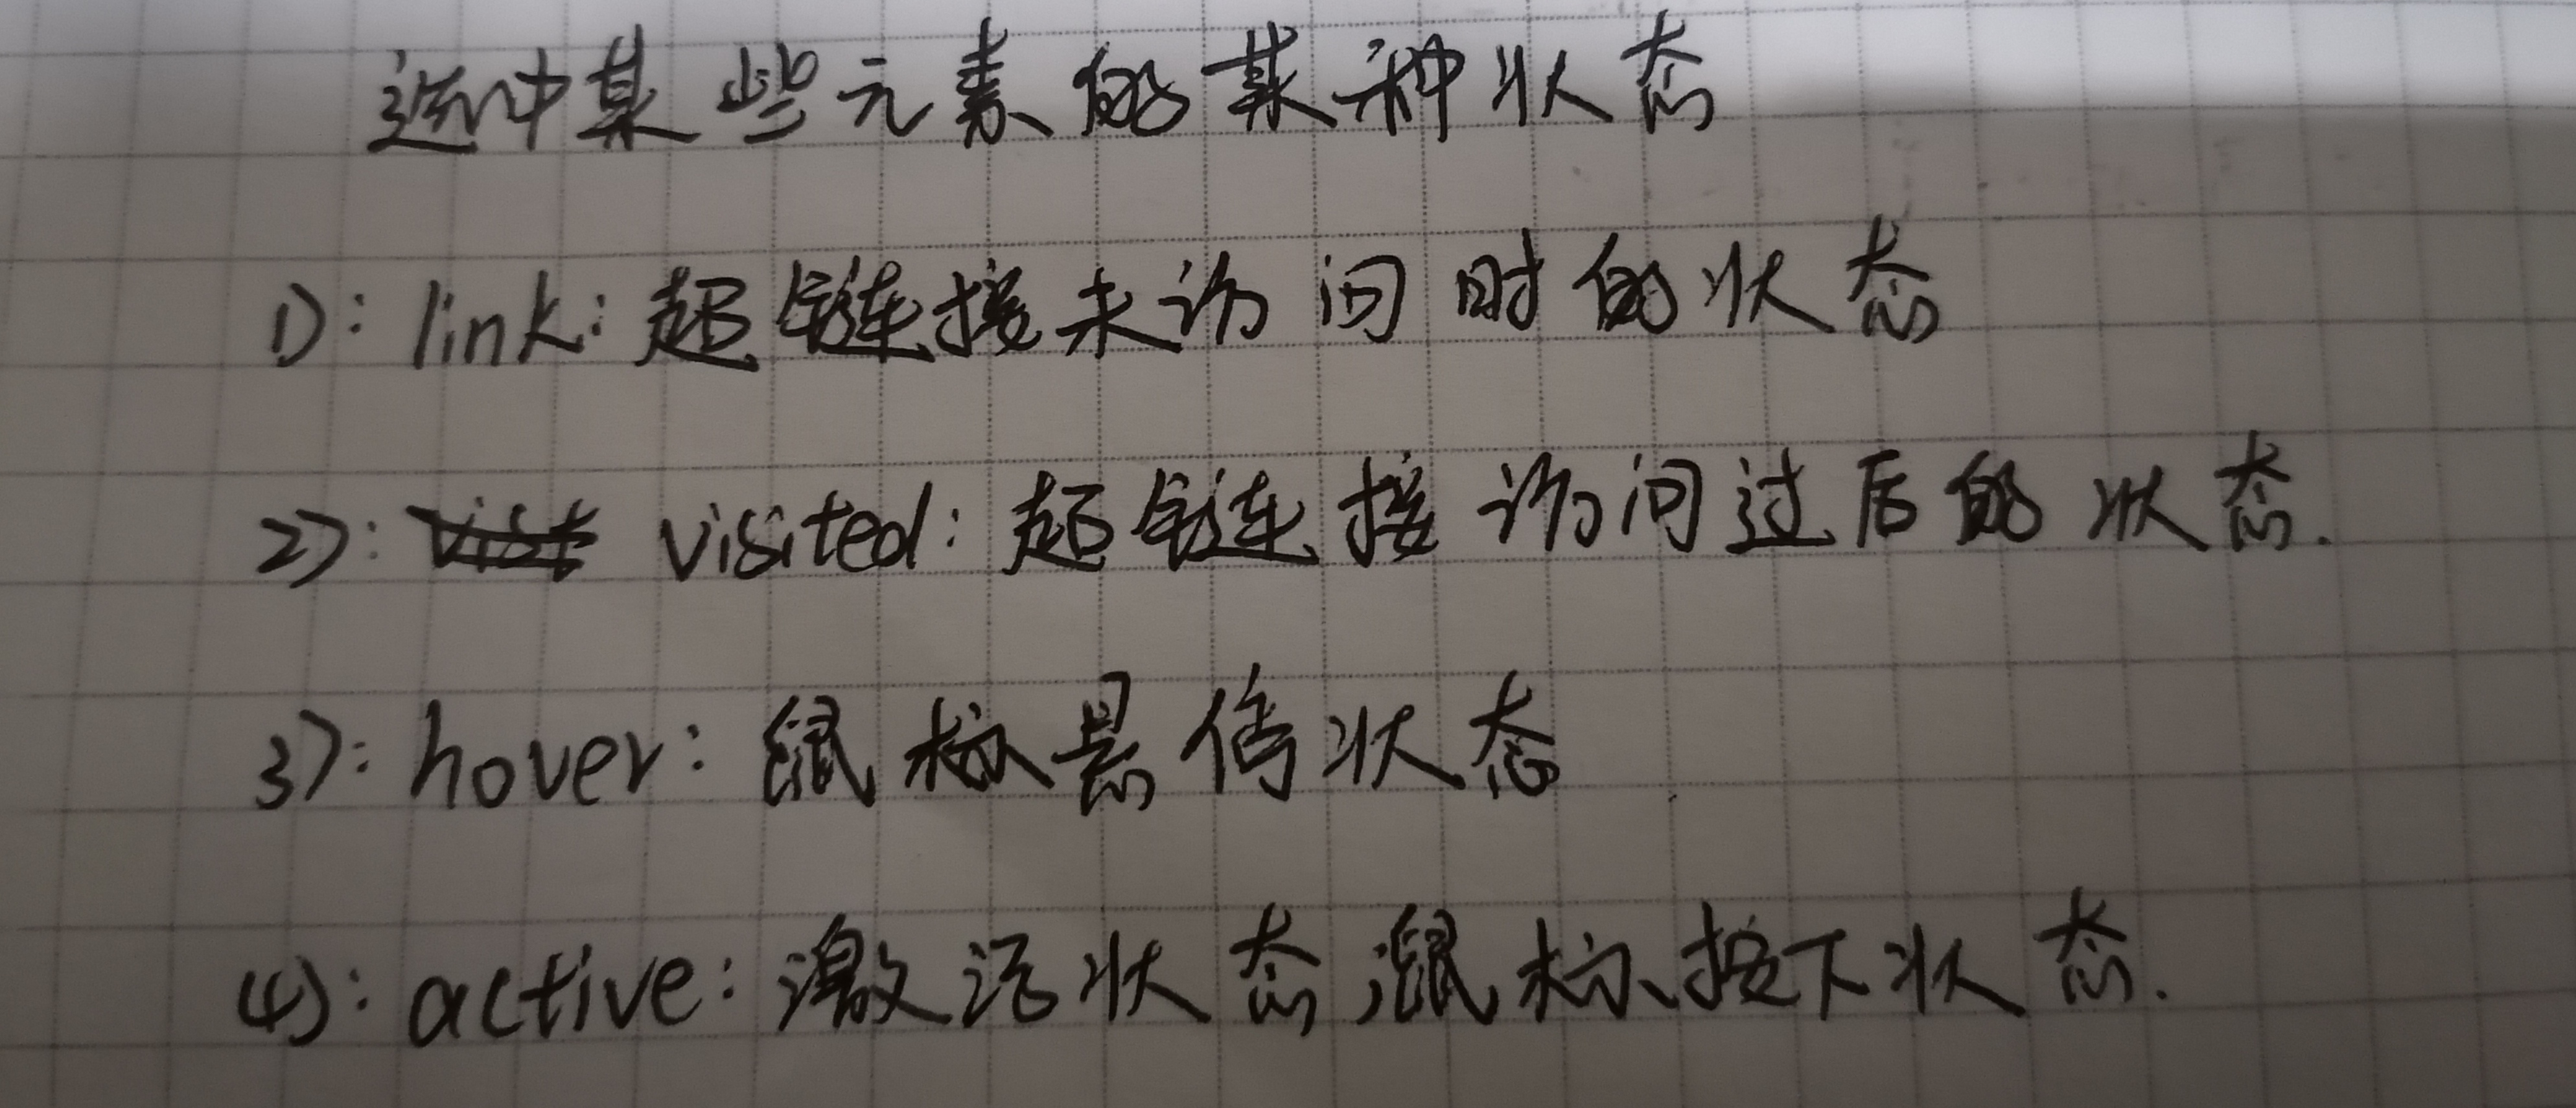 选中某些元素的某种状态
1): link: 超链接未访问时的状态
2): visited: 超链接访问过后的状态.
3): hover: 鼠标悬停状态
4): active: 激活状态,鼠标按下状态.